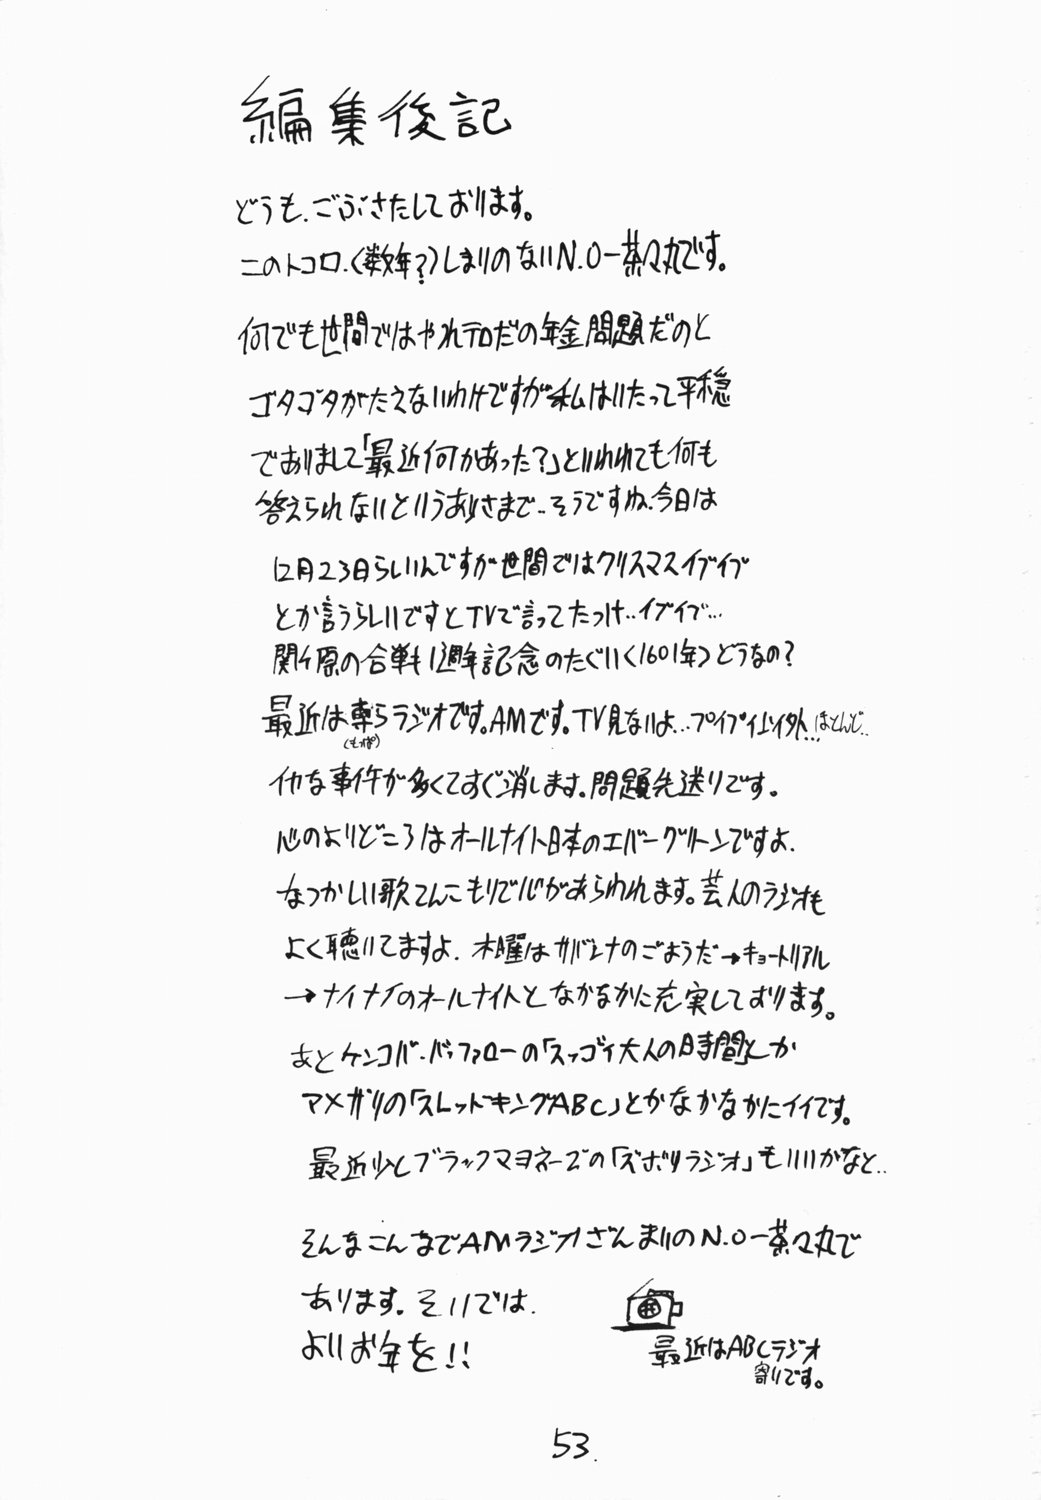 編集後記
どうも、ごぶさたしております。
このトコロ、(数年?)しまりのないN.O一茶々丸です。
何でも世間ではやれテロだの年金問題だのと
ゴタゴタがたえないわけですが私はいたって平穏
でありまして「最近何かあった?」といわれても何も
答えられないというありさまで‥そうですね、今日は
12月23日らしいんですが世間ではクリスマスイブイブ
とか言うらしいですとTVで言ってたっけ‥イブイブ…
関ケ原の合戦も1周年記念のたぐい(1601年)どうなの?
最近は専らラジオです。AMです。TV見ないよ…プイプイ以外…ほとんど‥
(もっぱ)
イヤな事件が多くてすぐ消します。問題先送りです。
心のよりどころはオールナイト日本のエバーグリーンですよ、
なつかしい歌てんこもりで心があらわれます。芸人のラジオも
よく聴いてますよ、木曜はサバンナのごようだ→キョートリアル
→ナイナイのオールナイトとなかなかに充実しております。
あとケンコバ・バッファローの「スッゴイ大人の時間」とか
アメザリの「スレッドキングABC」とかなかなかにイイです。
最近少しブラックマヨネーズの「ズボリラジオ」もいいかなと‥
そんなこんなでAMラジオざんまいのN.O一茶々丸で
あります。そいでは、
よいお年を!!
最近はABCラジオ
寄りです。
53.